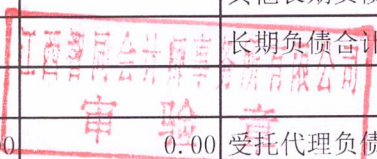 长期负债合计
江西智同会计师事务所有限公司
审验章
0.00 受托代理负债